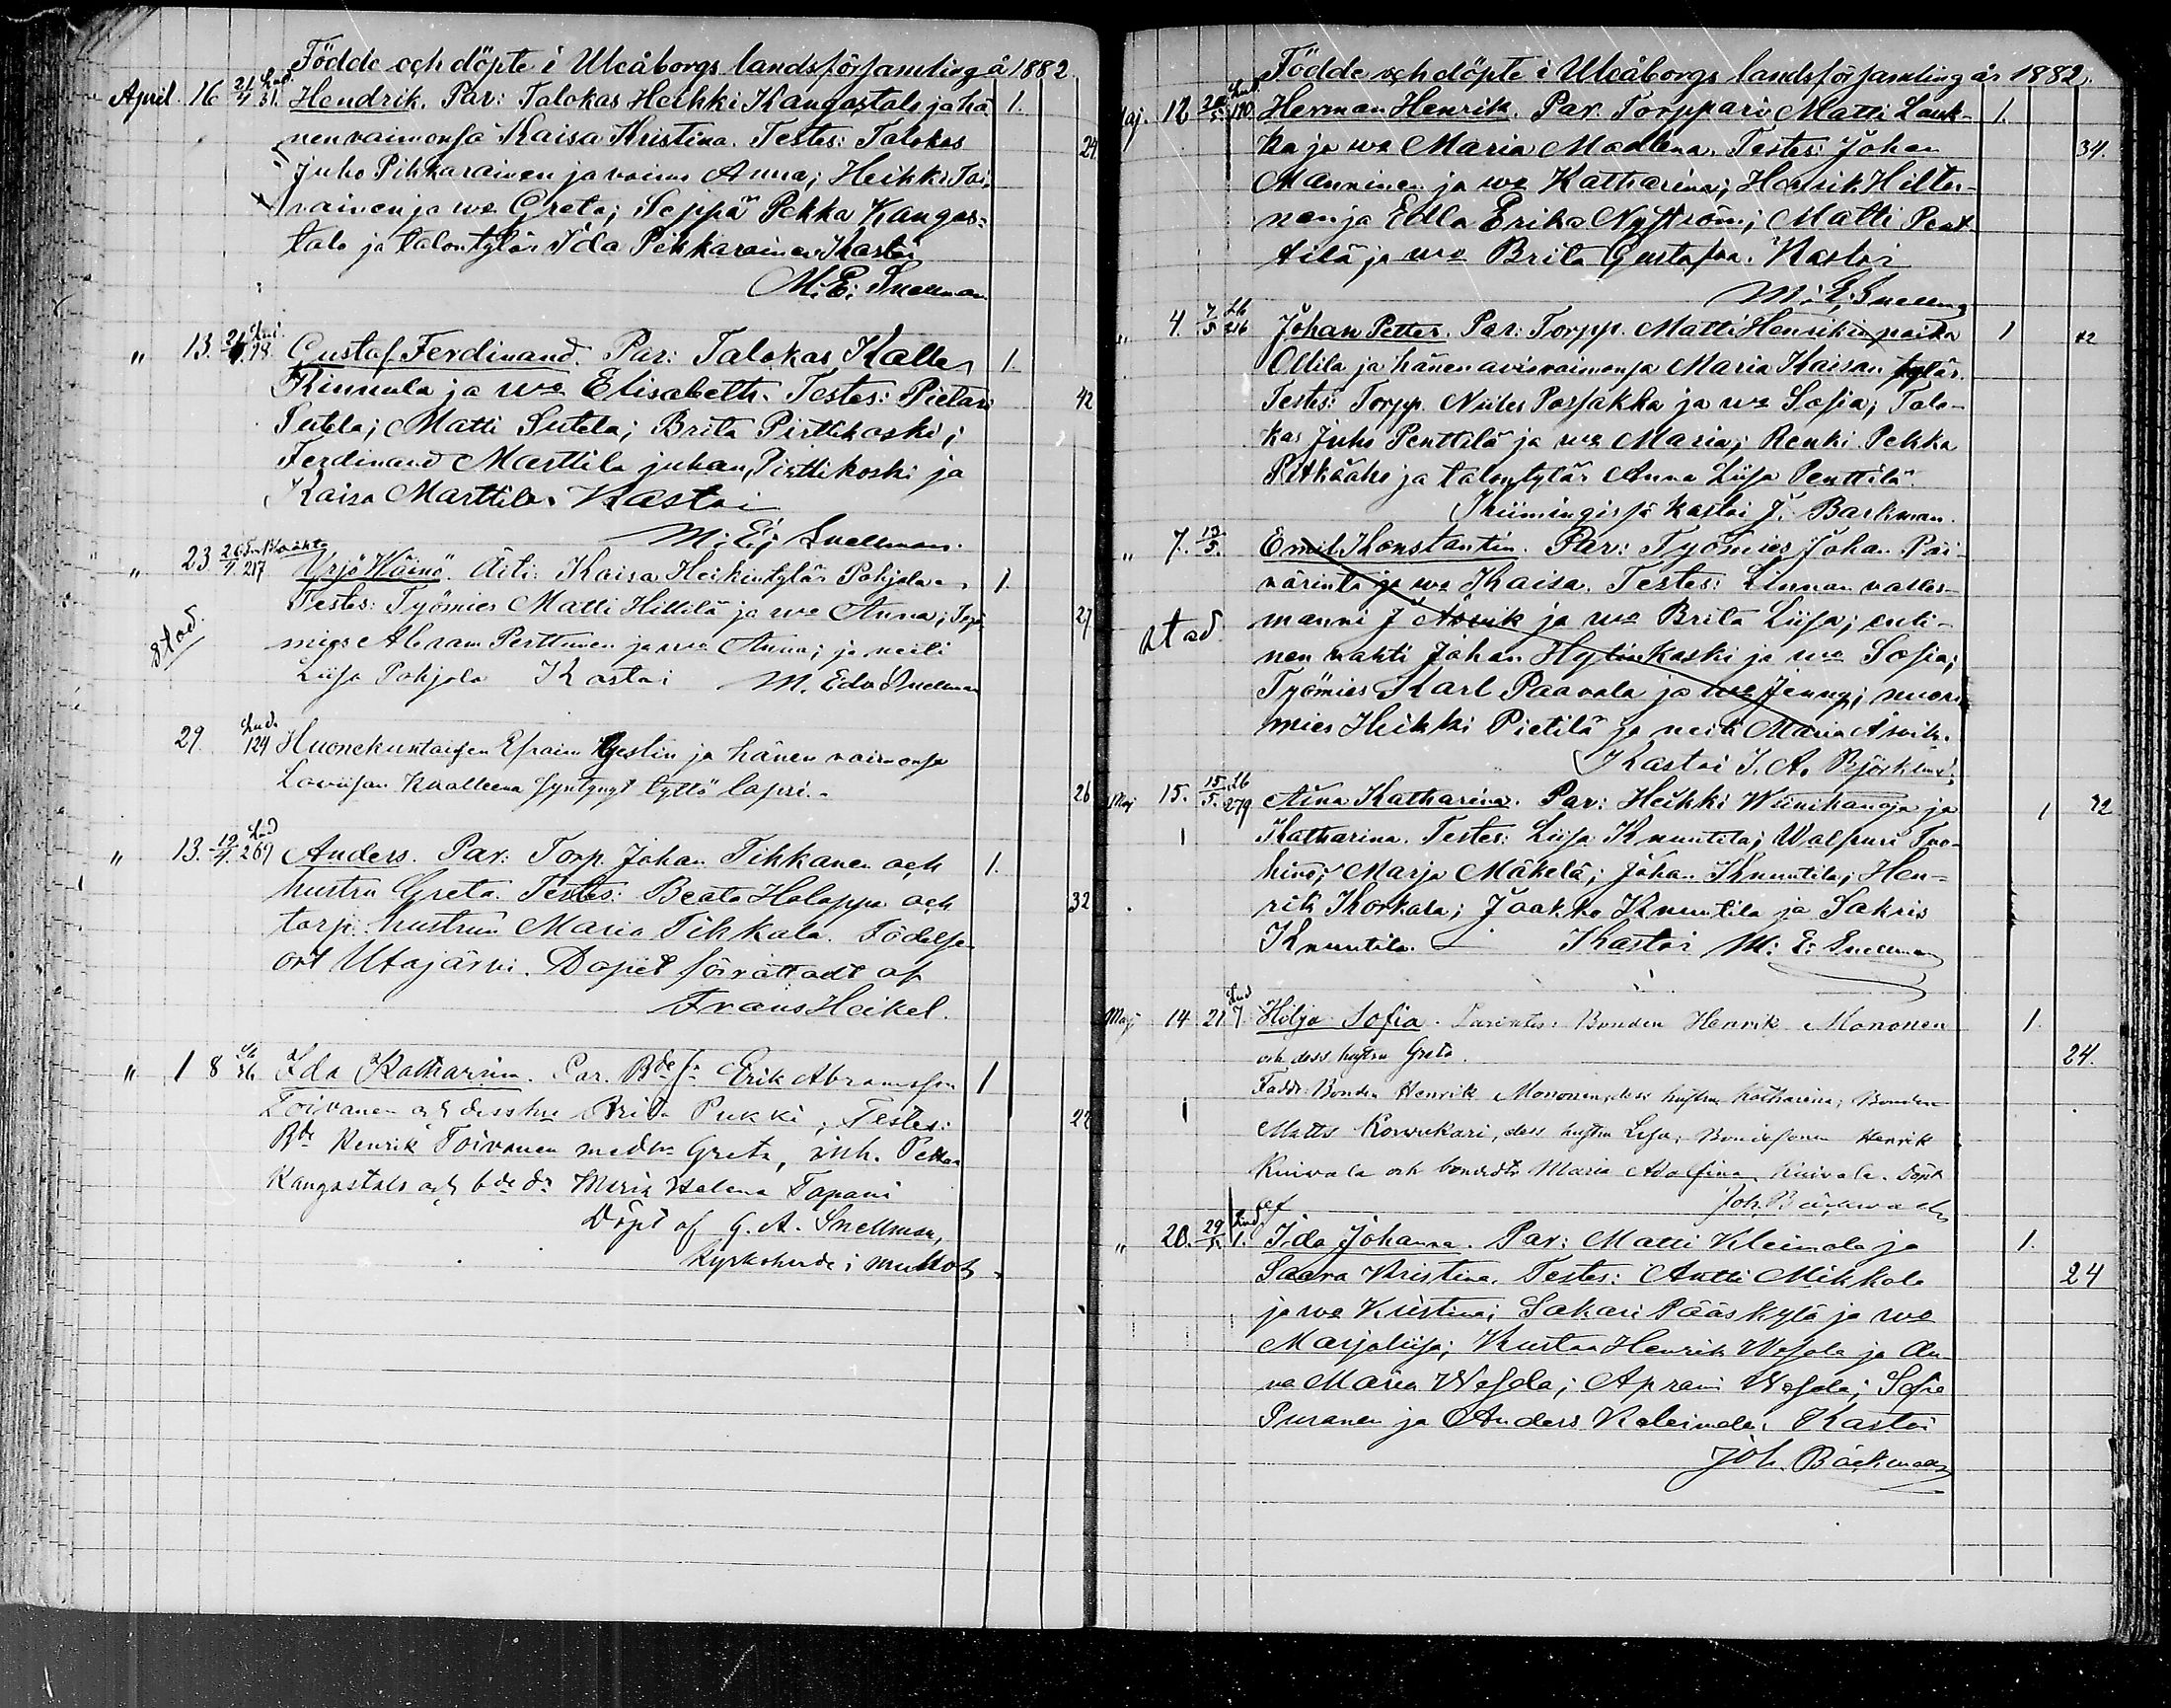 Födde och döpte i Uleåborgs landsförsamling å 1882
April 16 21/4 Lud. 31. Hendrik. Par: Talokas Heikki Kangastalo ja hä 1.
nen vaimonsa Kaisa Kristina. Testes: Talokas 24
Juho Pikkarainen ja vaimo Anna; Heikki Toi-
vainen ja wo Greta; Seppä Pekka Kangas-
talo ja talontytär Ida Pikkarainen Kastoi
M. E. Snellman
" 13. 21/4 78 Gustaf Ferdinand. Par: Talokas Kalle 1.
Kinnula ja wo Elisabeth. Testes: Pietari 42
Sutela; Matti Sutela; Brita Pirttikoski;
Ferdinand Marttila, Juhan Pirttikoski ja
Kaisa Marttila. Kastoi
M. E. Snellman.
" 23 217 Yrjö Wäinö. Äiti: Kaisa Heikintytär Pohjola 1.
Testes: Työmies Matti Hiltilä ja wo Anna; Työ- 27
stad. mies Abram Perttunen ja wo Anna; ja neiti
Liisa Pohjola Kastoi M. Edv Snellman
29. Lud. 129 Huonekuntaisen Efraim ja hänen vaimonsa
Loviisan kuolleena syntynyt tyttö lapsi. 26
" 13. 19/4 Lud 269 Anders. Par: Torp. Johan Tikkanen och 1.
hustru Greta. Testes: Beata Holappa och 32
torp. hustrun Maria Tihkala. Födelse
ort Utajärvi. Dopet förrättadt af
Frans Heikel.
" 1 8 Ida Katharina. Par. Bdes Erik Abramsson 1
Toivanen och dess hu Brita Pukki; Testes: 22
Bde Henrik Toivonen med hu Greta, inh. Pekka
Kangastalo och bde dr Maria Helena Tapani
Döpt af G. A. Snellman,
Kyrkoherde i Muhos
Födde och döpte i Uleåborgs landsförsamling år 1882
Maj. 12 Lud. 180 Herman Henrik. Par. Torppari Matti Louk- 1.
ka ja wo Maria Madlena. Testes: Johan 34.
Manninen ja wo Katharina; Henrik Hiltu-
nen ja Edla Erika Nyström; Matti Pent-
tilä ja wo Brita Gustafva. Kastoi
M. E. Snellman
" 4. 7/5 Lb 216 Johan Petter. Par: Torpp. Matti Henrikin poika 1 42
Ollila ja hänen aviovaimonsa Maria Kaisan tytär.
Testes: Torpp. Niiles Porsakka ja wo Sofia; Talo-
kas Juho Penttilä ja wo Maria; Renki Pekka
Pitkäaho ja talontytär Anna Liisa Penttilä
Kiimingissä kastoi J. Barkman.
" 7. 13/5. Emil Konstantin. Par: Työmies Johan Päi-
värinta ja wo Kaisa. Testes: Linnan valles-
stad manni J Åsvik ja wo Brita Liisa; enti-
nen vahti Johan Hytinkoski ja wo Sofia;
Työmies Karl Paavola ja wo Jenny; nuori
mies Heikki Pietilä ja neiti Maria Åsvik.
Kastoi J. A. Björklund.
Maj 15. 15/5. Lb 279 Aina Katharina. Par: Heikki Wiinikangas ja 1 42
Katharina. Testes: Liisa Knuutila; Walpuri Tuo-
hino; Marja Mäkelä; Johan Knuutila; Hen-
rik Korkala; Jaakko Knuutila ja Sakris
Knuutila. Kastoi M. E. Snellman
Maj 14 21 Lud 7 Hilja Sofia. Parentes: Bonden Henrik Mononen 1.
och dess hustru Greta. 24.
Faddr: Bonden Henrik Mononen, dess hustru Katharina; Bonden
Matts Korvukari, dess hustru Lisa; Bondesonen Henrik
Kuivala och bondedtr Maria Adolfina Kuivala. Döpt
af Joh. Bäckman
" 20. 29/5. Lud 1. Ida Johanna. Par: Matti Kleimola ja 1.
Saara Kristina. Testes: Antti Mikkola 24
ja wo Kristina; Sakari Pääskylä ja wo
Marjaliisa; Kustaa Henrik Wesala ja An-
na Maria Wesala; Aprami Wesala; Sofia
Puranen ja Anders Koleimola. Kastoi
Joh. Bäckman